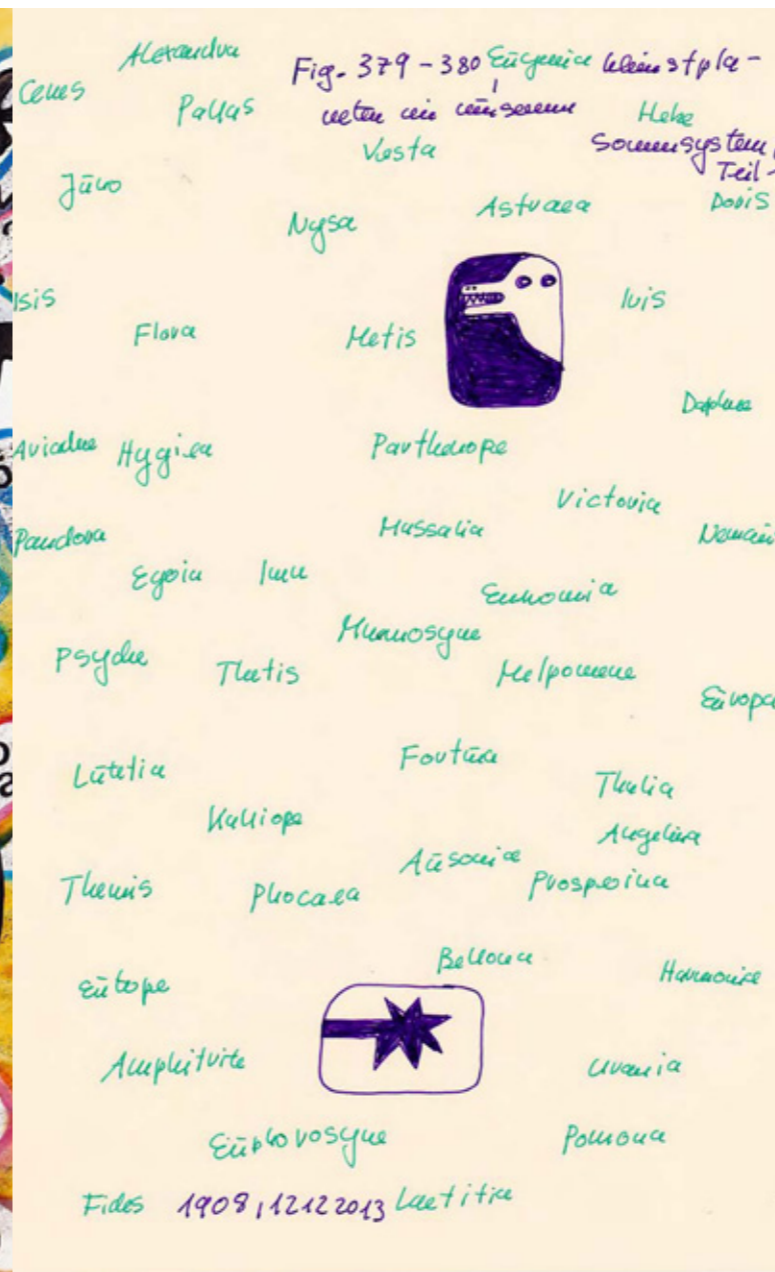 Alexandra
Fig. 379-380 Eugenia Kleinstpla-
Ceres
Pallas
neten in unserem
Hebe
Vesta
Sonnensystem,
Teil
Juno
Nysa
Astraea
Doris
Isis
Iris
Flora
Metis
Daphne
Ariadne
Hygiea
Parthenope
Victoria
Pandora
Massalia
Egeria
Irene
Eunomia
Mnemosyne
Psyche
Thetis
Melpomene
Europa
Lutetia
Fortuna
Thalia
Kalliope
Angelina
Ausonia
Themis
Phocaea
Proserpina
Bellona
Harmonia
Euterpe
Amphitrite
Urania
Euphrosyne
Pomona
Fides 1908, 12122013 Laetitia